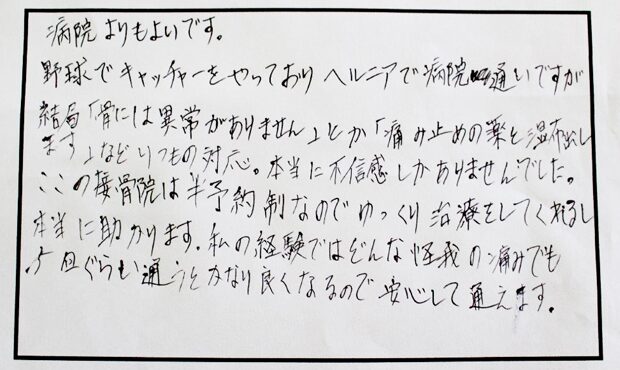 病院よりもよいです。
野球でキャッチャーをやっておりヘルニアで病院通いですが
結局「骨には異常がありません」とか「痛み止めの薬と湿布出し
ます」などいつもの対応。本当に不信感しかありませんでした。
ここの接骨院は半予約制なのでゆっくり治療をしてくれるし
本当に助かります。私の経験ではどんな怪我の痛みでも
5回ぐらい通うとかなり良くなるので安心して通えます。